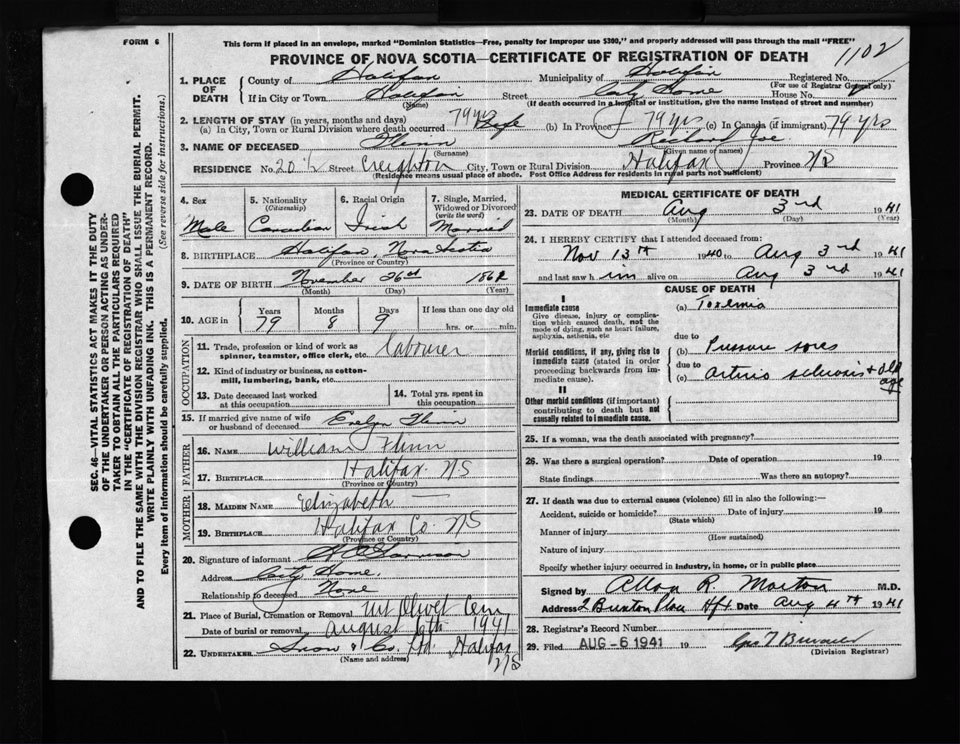 FORM 6
This form if placed in an envelope, marked "Dominion Statistics—Free, penalty for improper use $300," and properly addressed will pass through the mail "FREE"
PROVINCE OF NOVA SCOTIA—CERTIFICATE OF REGISTRATION OF DEATH
1102
1. PLACE OF DEATH County of Halifax Municipality of Halifax Registered No.
(For use of Registrar General only)
If in City or Town Halifax Street City Home House No.
(Name) (If death occurred in a hospital or institution, give the name instead of street and number)
2. LENGTH OF STAY (in years, months and days)
(a) In City, Town or Rural Division where death occurred 79 yrs Life (b) In Province 79 yrs (c) In Canada (if immigrant) 79 yrs
3. NAME OF DECEASED Flinn Richard Joe
(Surname) (Given name or names)
RESIDENCE No. 20½ Street Creighton City, Town or Rural Division Halifax Province NS
(Residence means usual place of abode. Post Office Address for residents in rural parts not sufficient)
4. Sex Male
5. Nationality (Citizenship) Canadian
6. Racial Origin Irish
7. Single, Married, Widowed or Divorced (write the word) Married
8. BIRTHPLACE Halifax, Nova Scotia
(Province or Country)
9. DATE OF BIRTH November 26st 1862
(Month) (Day) (Year)
10. AGE IN Years 79 Months 8 Days 9 If less than one day old
hrs. or min.
OCCUPATION
11. Trade, profession or kind of work as spinner, teamster, office clerk, etc. Labourer
12. Kind of industry or business, as cotton-mill, lumbering, bank, etc.
13. Date deceased last worked at this occupation
14. Total yrs. spent in this occupation
15. If married give name of wife or husband of deceased Evelyn Flinn
FATHER
16. NAME William Flinn
17. BIRTHPLACE Halifax NS
(Province or Country)
MOTHER
18. MAIDEN NAME Elizabeth
19. BIRTHPLACE Halifax Co. NS
(Province or Country)
20. Signature of informant
Address City Home
Relationship to deceased None
21. Place of Burial, Cremation or Removal Mt Olivet Cem
Date of burial or removal August 1941
22. UNDERTAKER Snow & Co. Ltd. Halifax NS
(Name and address)
MEDICAL CERTIFICATE OF DEATH
23. DATE OF DEATH Aug 3rd 1941
(Month) (Day) (Year)
24. I HEREBY CERTIFY that I attended deceased from:
Nov 13th 1940 to Aug 3rd 1941
and last saw him alive on Aug 3rd 1941
CAUSE OF DEATH
I
Immediate cause
Give disease, injury or complication which caused death, not the mode of dying, such as heart failure, asphyxia, asthenia, etc
(a) Toxemia
due to
Morbid conditions, if any, giving rise to immediate cause (stated in order proceeding backwards from immediate cause).
(b) Pressure sores
due to
(c) arterio sclerosis + old age
II
Other morbid conditions (if important) contributing to death but not causally related to immediate cause.
25. If a woman, was the death associated with pregnancy?
26. Was there a surgical operation? Date of operation 19
State findings Was there an autopsy?
27. If death was due to external causes (violence) fill in also the following:—
Accident, suicide or homicide? Date of injury 19
(State which)
Manner of injury
(How sustained)
Nature of injury
Specify whether injury occurred in industry, in home, or in public place
Signed by Allan R Morton M.D.
Address 2 Buxton Place Hfx Date Aug 4th 1941
28. Registrar's Record Number
29. Filed AUG - 6 1941 19
(Division Registrar)
SEC. 46—VITAL STATISTICS ACT MAKES IT THE DUTY
OF THE UNDERTAKER OR PERSON ACTING AS UNDER-
TAKER TO OBTAIN ALL THE PARTICULARS REQUIRED
IN THE "CERTIFICATE OF REGISTRATION OF DEATH"
AND TO FILE THE SAME WITH THE DIVISION REGISTRAR WHO SHALL ISSUE THE BURIAL PERMIT.
WRITE PLAINLY WITH UNFADING INK. THIS IS A PERMANENT RECORD.
Every item of information should be carefully supplied. (See reverse side for instructions.)